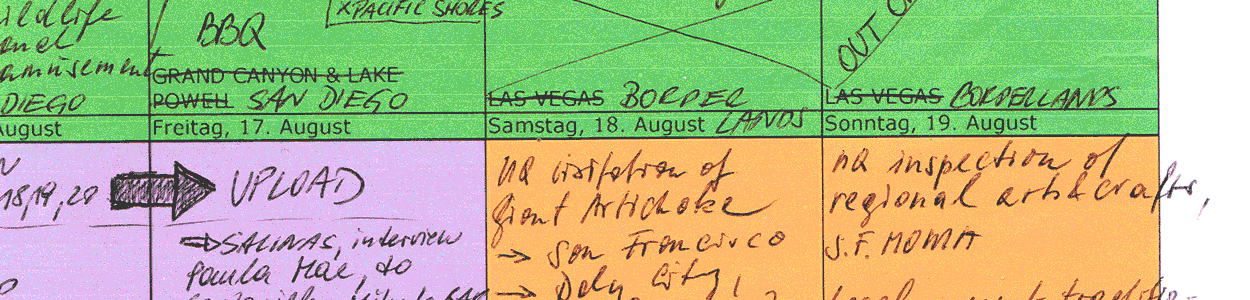 ildlife
amusement
DIEGO
August
BBQ
XPACIFIC SHORES
GRAND CANYON & LAKE
POWELL SAN DIEGO
Freitag, 17. August
18,19,20
UPLOAD
SALINAS, interview
to
LAS VEGAS BORDER
LANDS
Samstag, 18. August
visitation of
Giant Artichoke
→ San Francisco
→ Daly City,
OUT
LAS VEGAS BORDERLANDS
Sonntag, 19. August
inspection of
regional arts & crafts,
S.F. MOMA